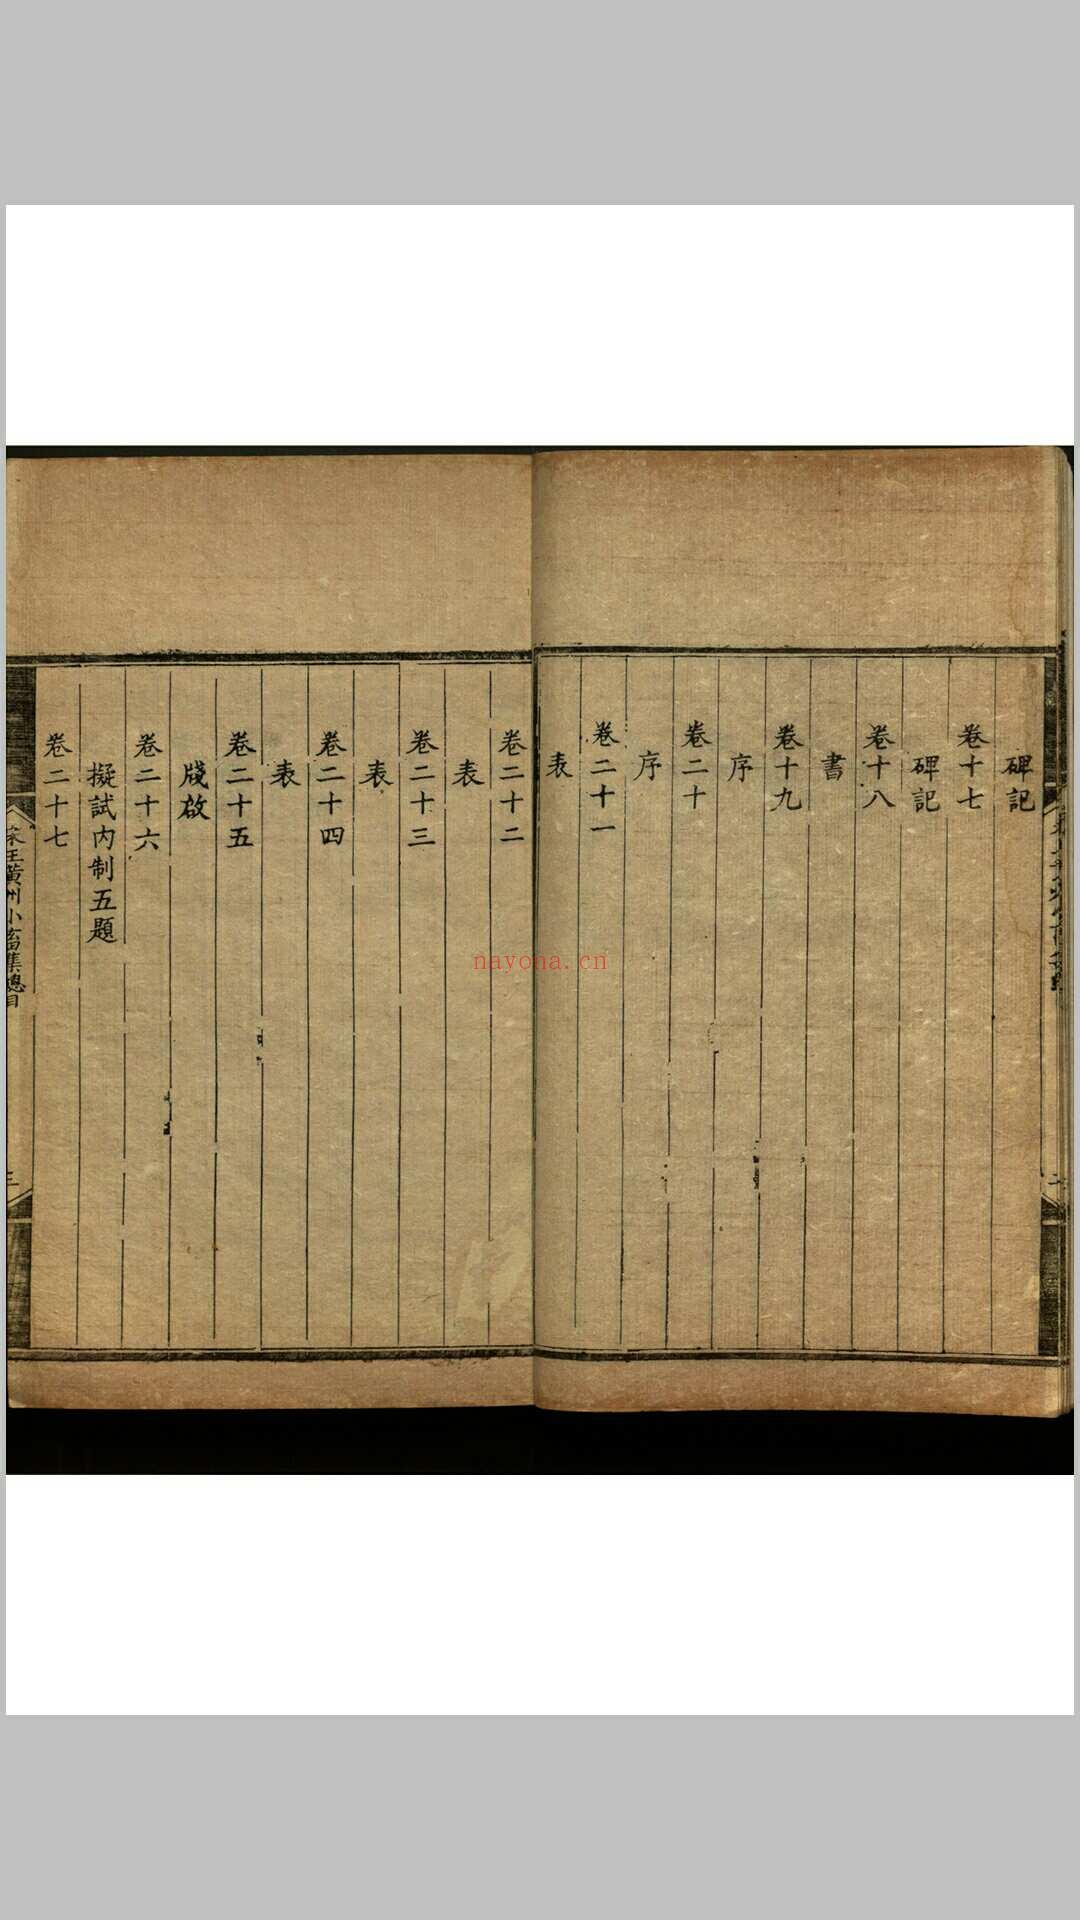 碑記
卷十七
碑記
卷十八
書
卷十九
序
卷二十
序
卷二十一
表
卷二十二
表
卷二十三
表
卷二十四
表
卷二十五
牋啟
卷二十六
擬試内制五題
卷二十七
宋王黃州小畜集總目
三
二
nayona.cn